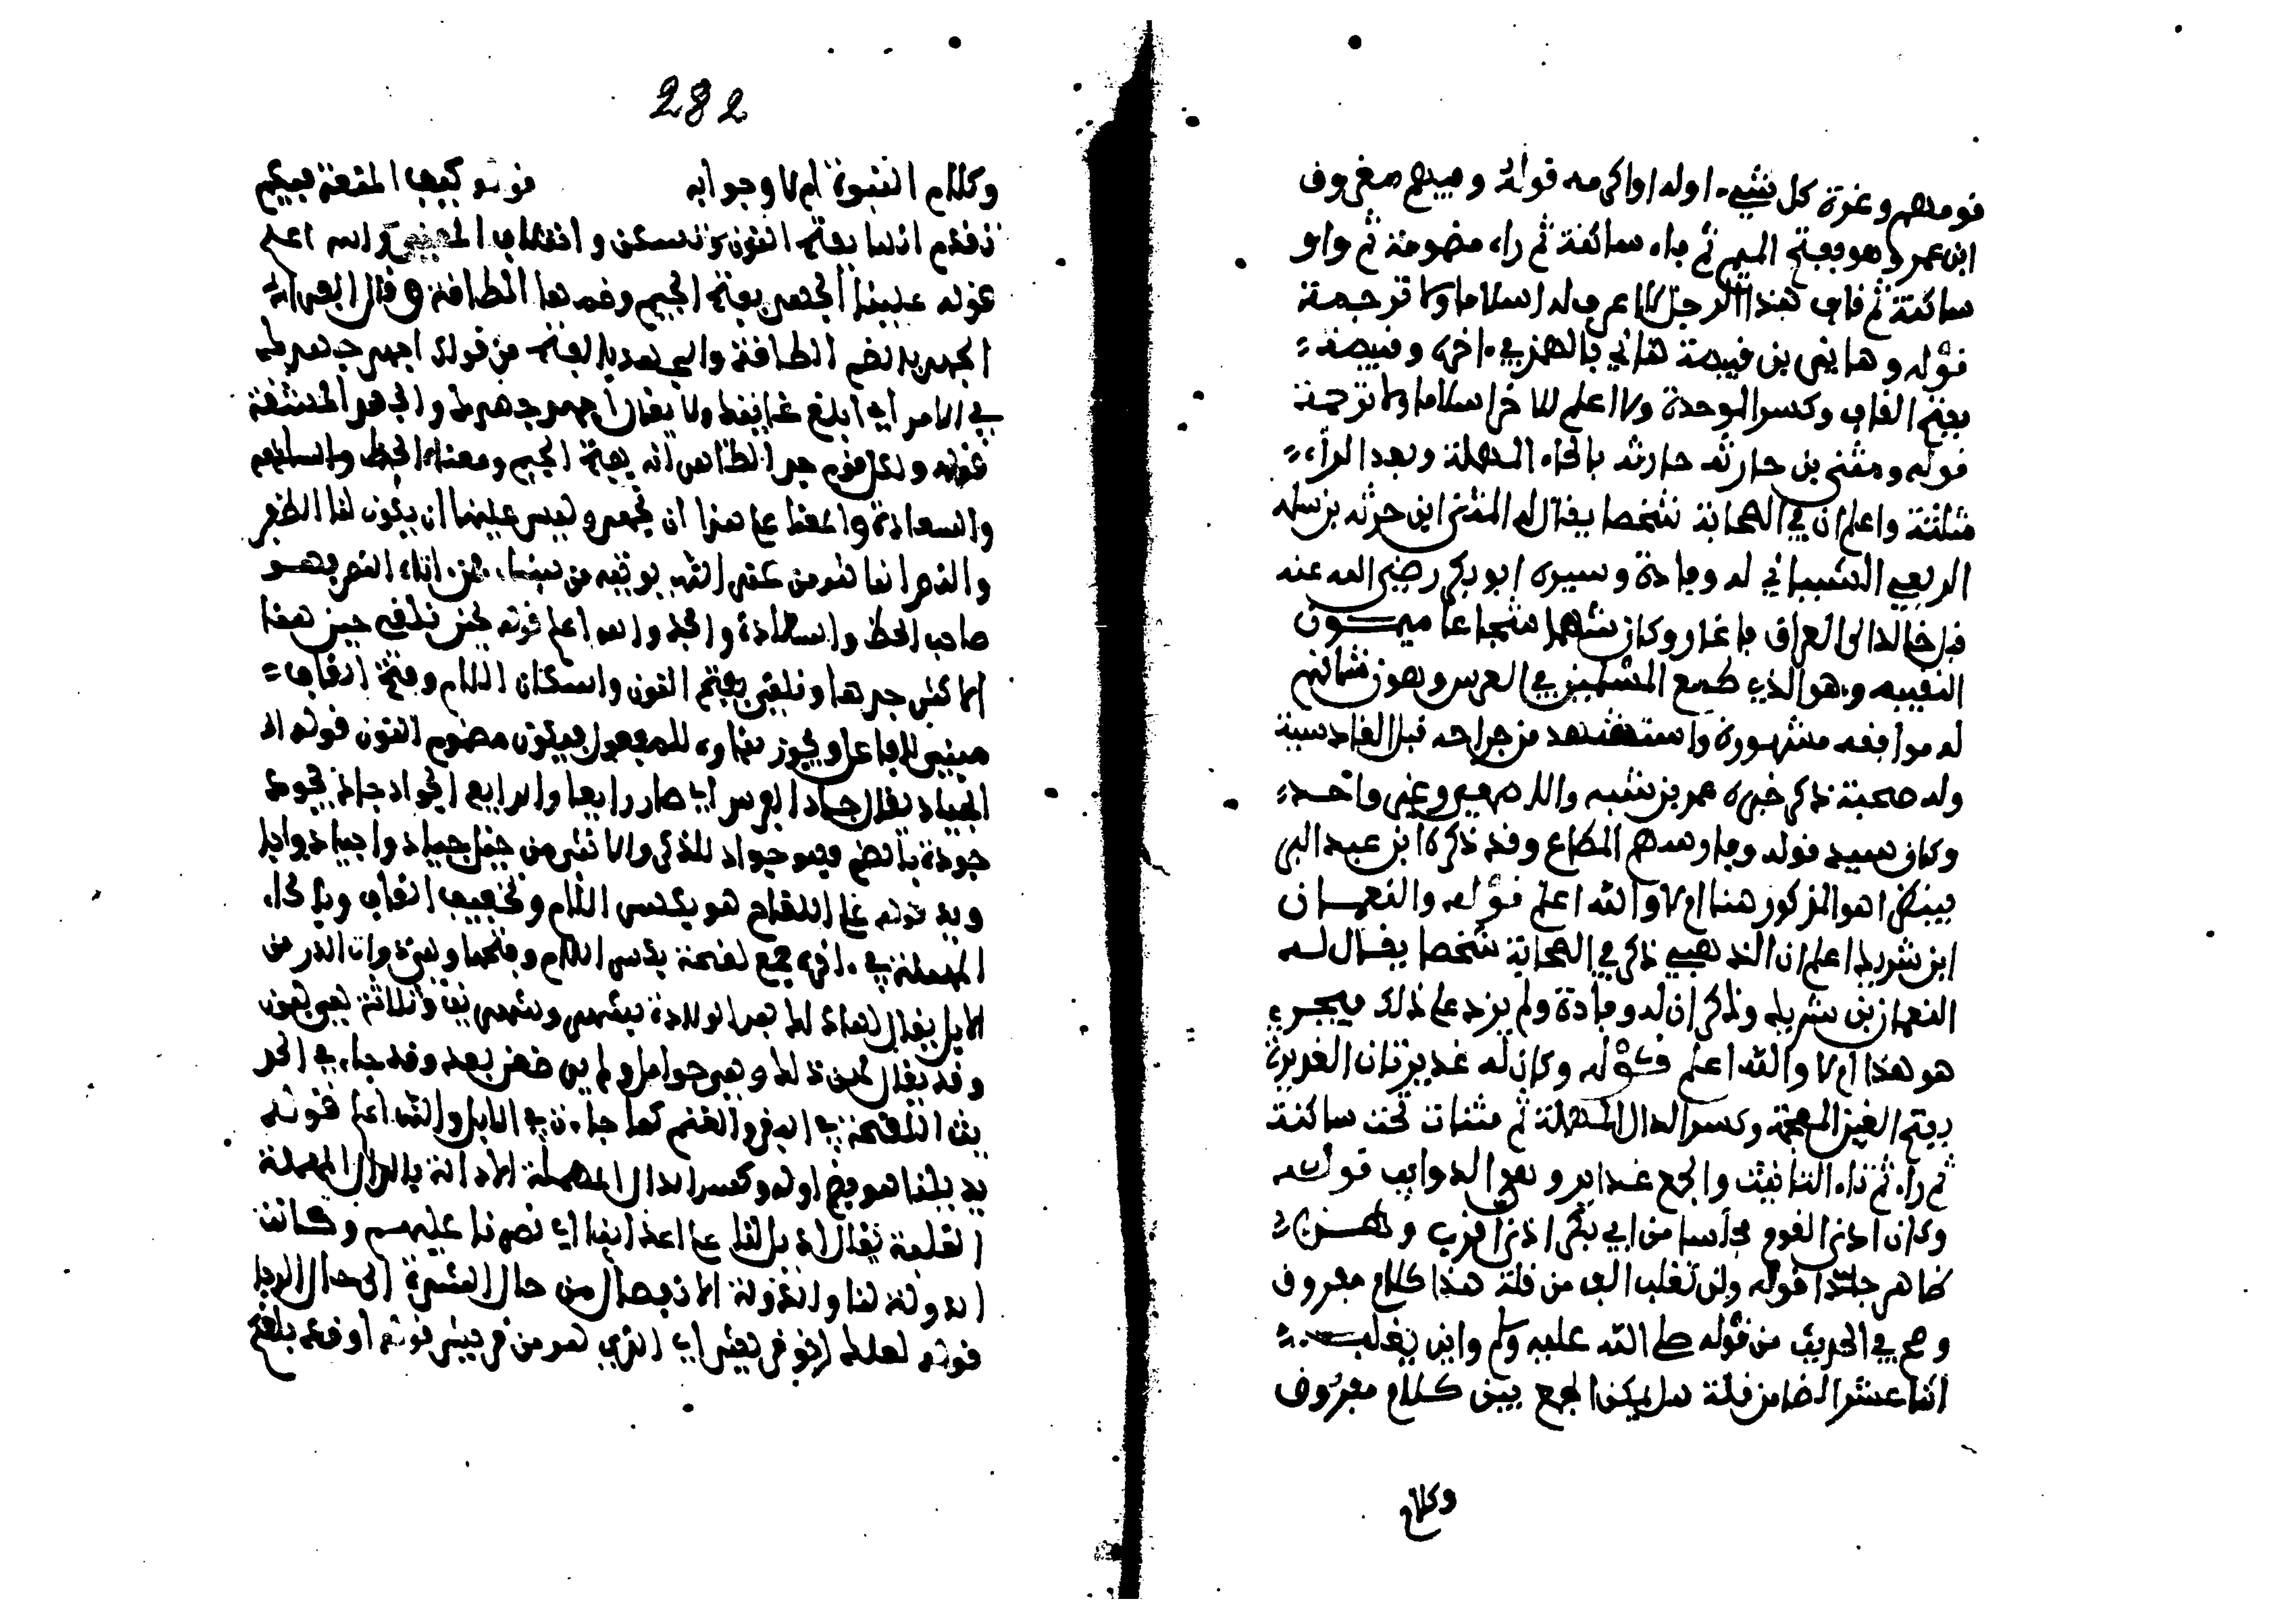 قومهم وغرة كل شيء اوله او اكرمه قوله وفيهم مفروق
ابن عمرو هو بفتح الميم ثم فاء ساكنة ثم راء مضمومة ثم واو
ساكنة ثم قاف هذا الرجل لا اعرف له اسلاما ولا ترجمة
قوله وهانئ بن قبيصة هانئ بالهمز في اخره وقبيصة
بفتح القاف وكسر الموحدة ولا اعلم للاخر اسلاما ولا ترجمة
قوله ومثنى بن حارثه حارثه بالحاء المهملة وبعد الراء
مثلثة واعلم ان في الصحابة شخصا يقال له المثنى ابن حرثه بن سلمه
الربعي الشيباني له وفادة وسيره ابو بكر رضي الله عنه
قبل خالد الى العراق فاغار وكان شهما شجاعا ميمون
النقيبه وهو الذي طمع المسلمين في الفرس وهون شانهم
له مواقعه مشهورة واستشهد من جراحه قبل القادسية
وله صحبة ذكر خبره عمر بن شبه والاصمعي وغير واحد
وكان سيد قوله وفارسهم المطاع وقد ذكره ابن عبد البر
فينظر اهو المذكور هنا ام لا والله اعلم قوله والنعمان
ابن شريك اعلم ان الذهبي ذكر في الصحابة شخصا يقال له
النعمان بن شريك وذكر ان له وفادة ولم يزد على ذلك فيجرر
هو هذا ام لا والله اعلم قوله وكان له غديرتان الغديرة
بفتح الغين المعجمة وكسر الدال المهملة ثم مثناة تحت ساكنة
ثم راء ثم تاء التانيث والجمع غداير وهي الذوايب قوله
وكان ادنى القوم مجلسا من ابي بكر ادنى اقرب وهذا
ظاهر جدا قوله ولن تغلب الف من قلة هذا كلام معروف
وصح في الحديث من قوله صلى الله عليه وسلم ولن يغلب
اثنا عشر الفا من قلة هل يمكن الجمع بين كلام مفروق
وكلام
282
وكلام النبوة ام لا وجوابه قوله كيف المنعة فيكم
تقدم انها بفتح النون وتسكن واختلاف والله اعلم
قوله علينا الجهد بفتح الجيم وضمها الطاقة وقال الفراء
الجهد بالضم الطاقة والجهد بالفتح من قولك اجهد جهدك
في الامر اي ابلغ غايتك ولا يقال اجهد جهدك والجهد المشقة
قوله ولكل قوم جد الظاهر انه بفتح الجيم ومعناه الحظ
والسعادة والمعنا على هذا ان نجهد وليس علينا ان يكون لنا الظفر
والنصر انما هو من عند الله يوتيه من يشاء فمن اتاه النصر فهو
صاحب الحظ والسعادة والجد والله اعلم قوله لحين نلقى حين هنا
الاكثر جرها ونلقى بفتح النون واسكان اللام وفتح القاف
مبني للفاعل ويجوز بناوه للمفعول فيكون مضموم النون قوله
الجياد يقال جاد الفرس اي صار رايعا والرايع الجواد جاد يجود
جودة بالضم فهو جواد للذكر والانثى من خيل جياد واجياد واجا
ويد قوله على اللقاح هو بكسر اللام وتخفيف القاف وبالحاء
المهملة في اخره جمع لقحة بكسر اللام وفتحها وهي ذوات الدر من
الابل يقال لها ذلك بعد الولادة بشهر وشهرين وثلاثة ثم هي لبون
وقد يقال لهن ذلك وهن حوامل ولم يضعن بعد وقد جاء في الحد
يث اللقحة في البقر والغنم كما جاء في الابل والله اعلم قوله
يديلنا هو بضم اوله وكسر الدال المهملة الادالة بالدال المهملة
الغلبة يقال اديل لنا على اعداينا اي نصرنا عليهم وكانت
الدولة لنا والدولة الانتقال من حال الشدة الى حال الرخا
قوله لعلك اخو قريش اي الذي هو من قريش قوله اوقد بلغكم